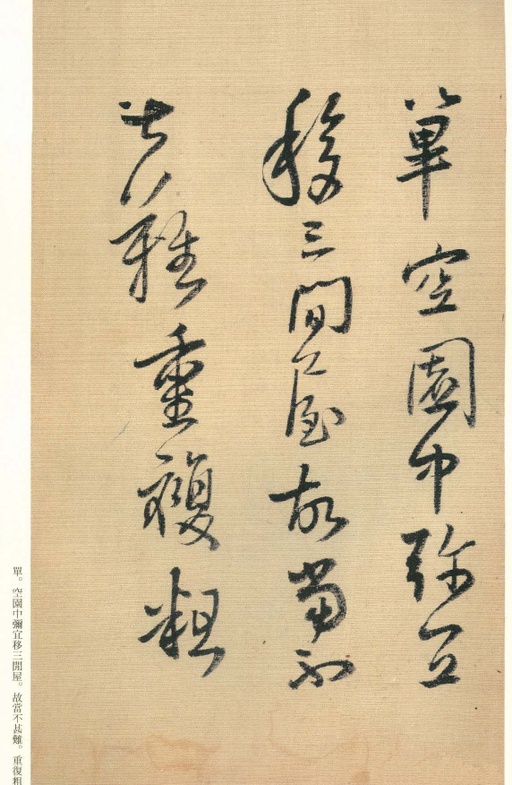 單空園中彌宜
移三間屋故當不
甚難重複粗
單。空園中彌宜移三間屋。故當不甚難。重復粗